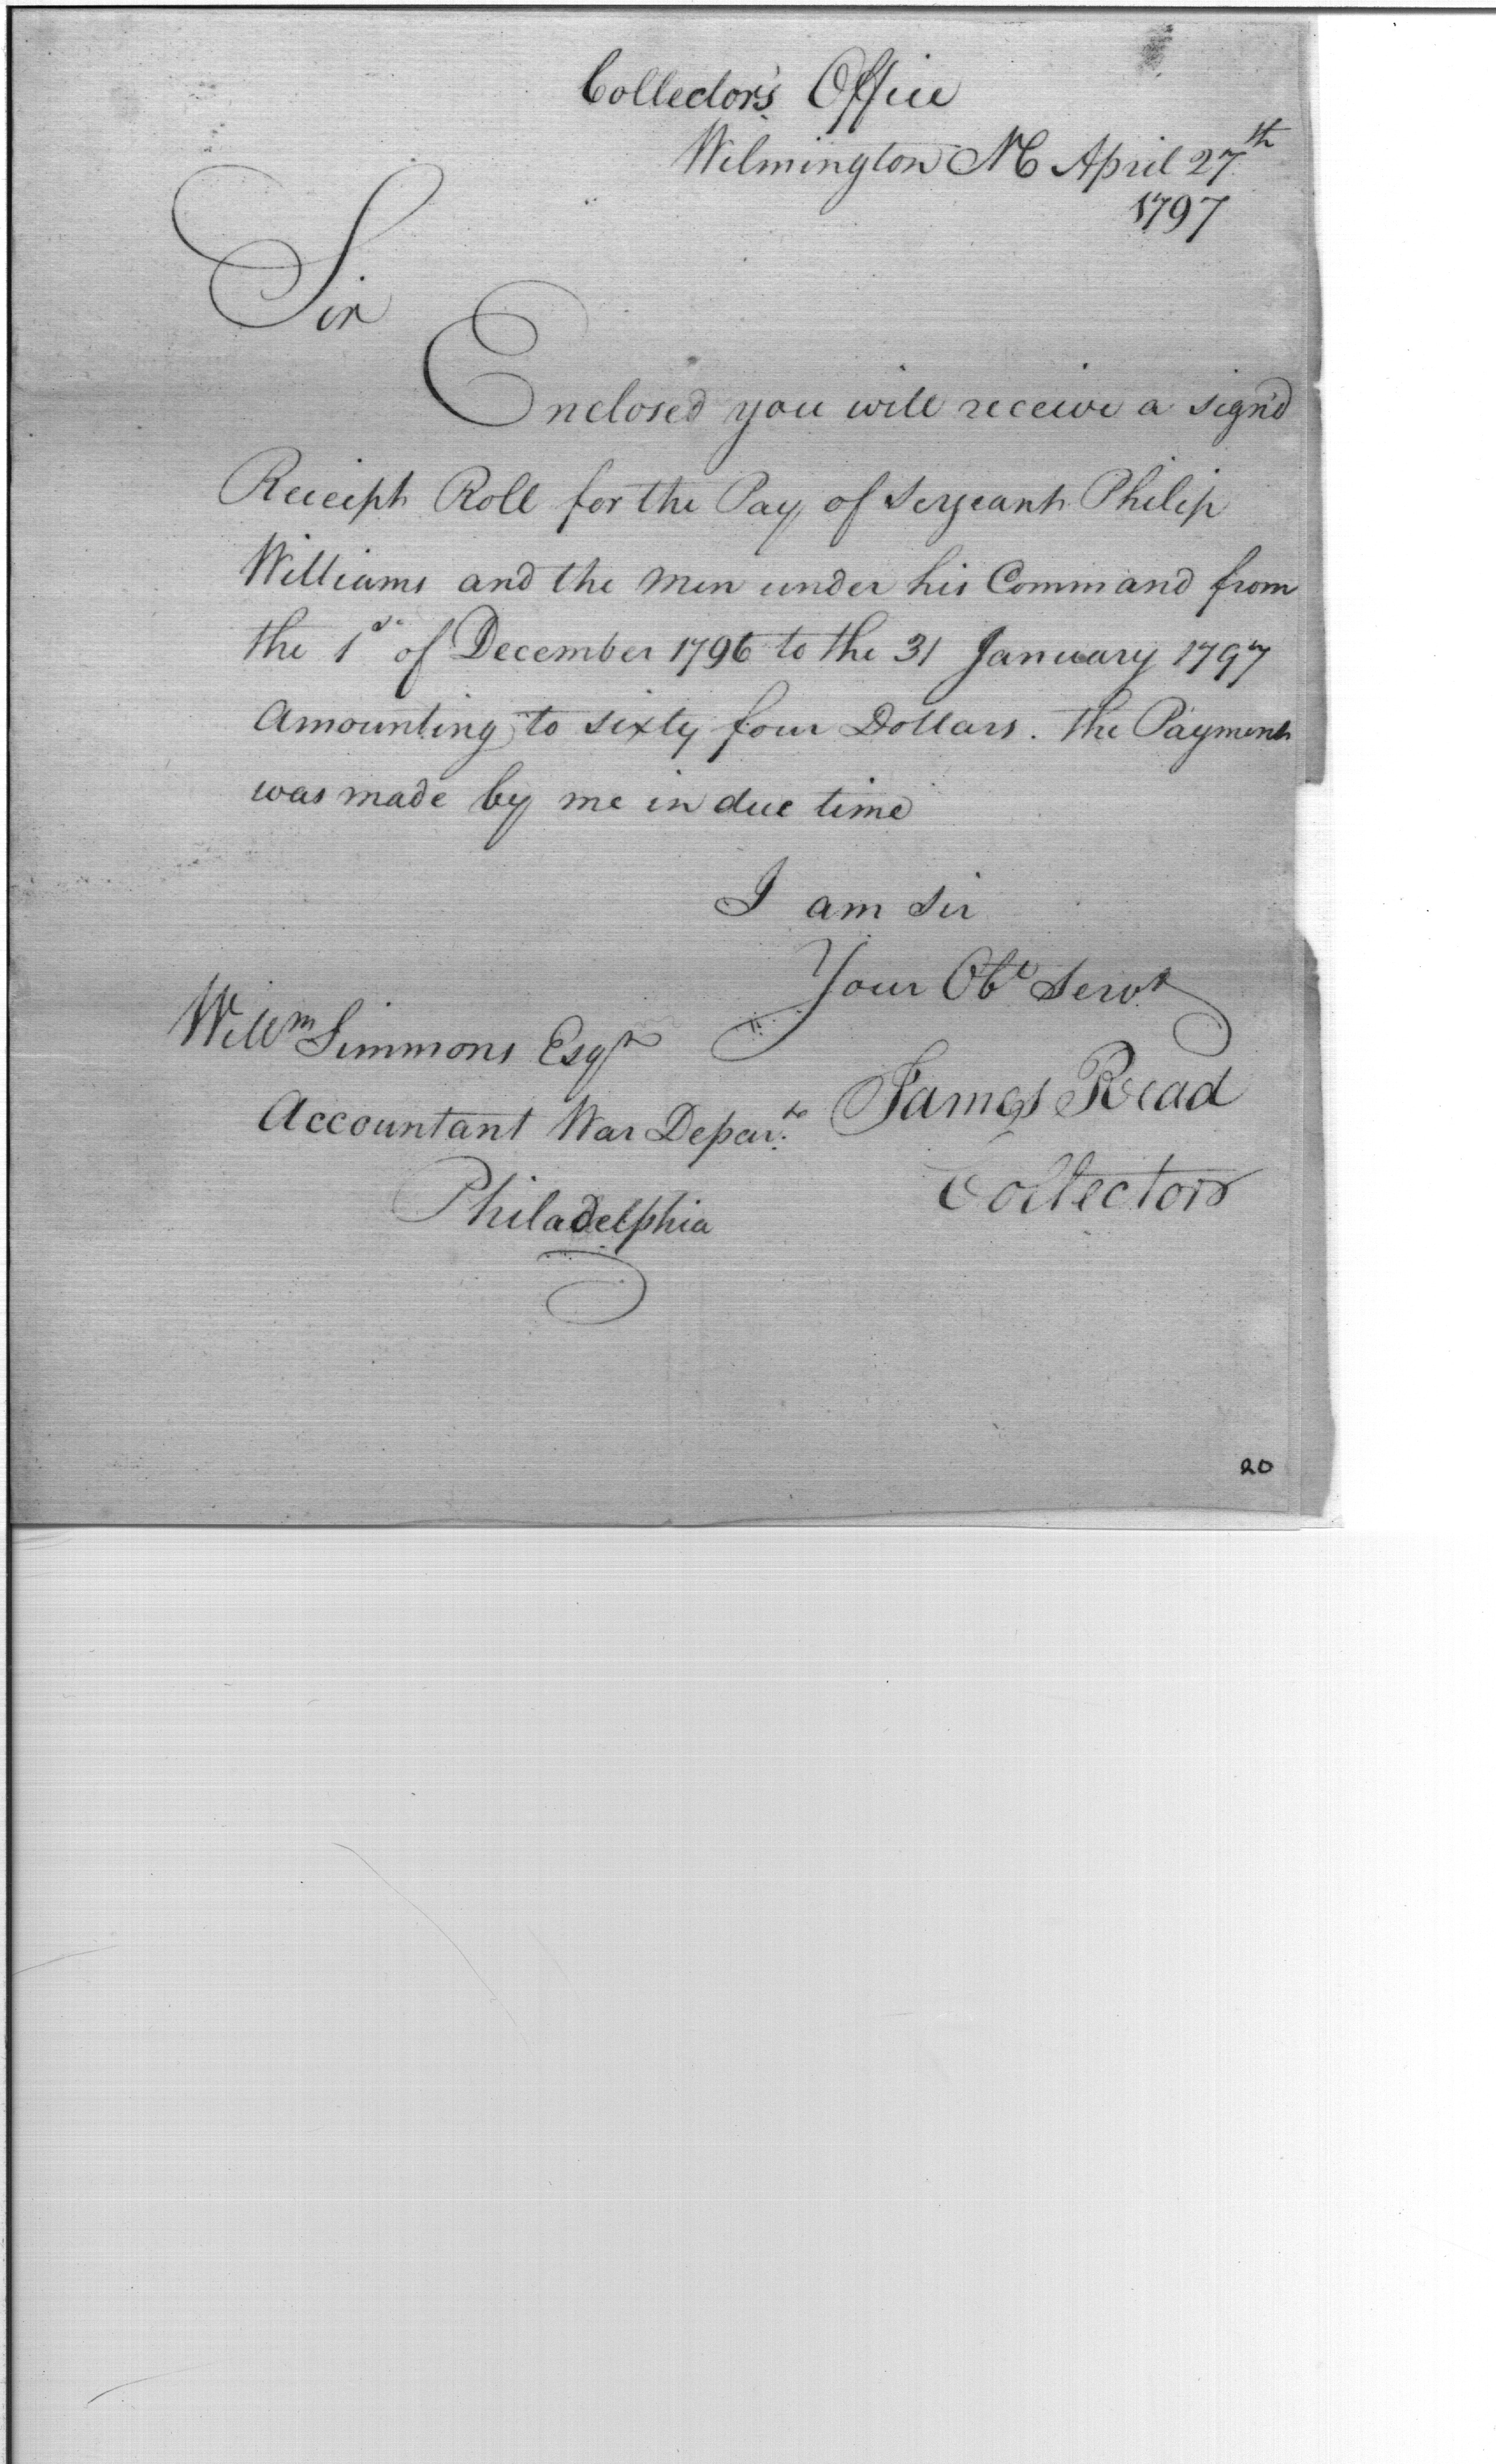 Collector's Office
Wilmington NC April 27th
1797
Sir
Enclosed you will receive a sign'd
Receipt Roll for the Pay of Serjeant Philip
Williams and the Men under his Command from
the 1st of December 1796 to the 31 January 1797
Amounting to sixty four Dollars. The Payment
was made by me in due time
I am Sir
Your Obt Servt
Willm Simmons Esqr
James Read
Accountant War Depart.
Collector
Philadelphia
20